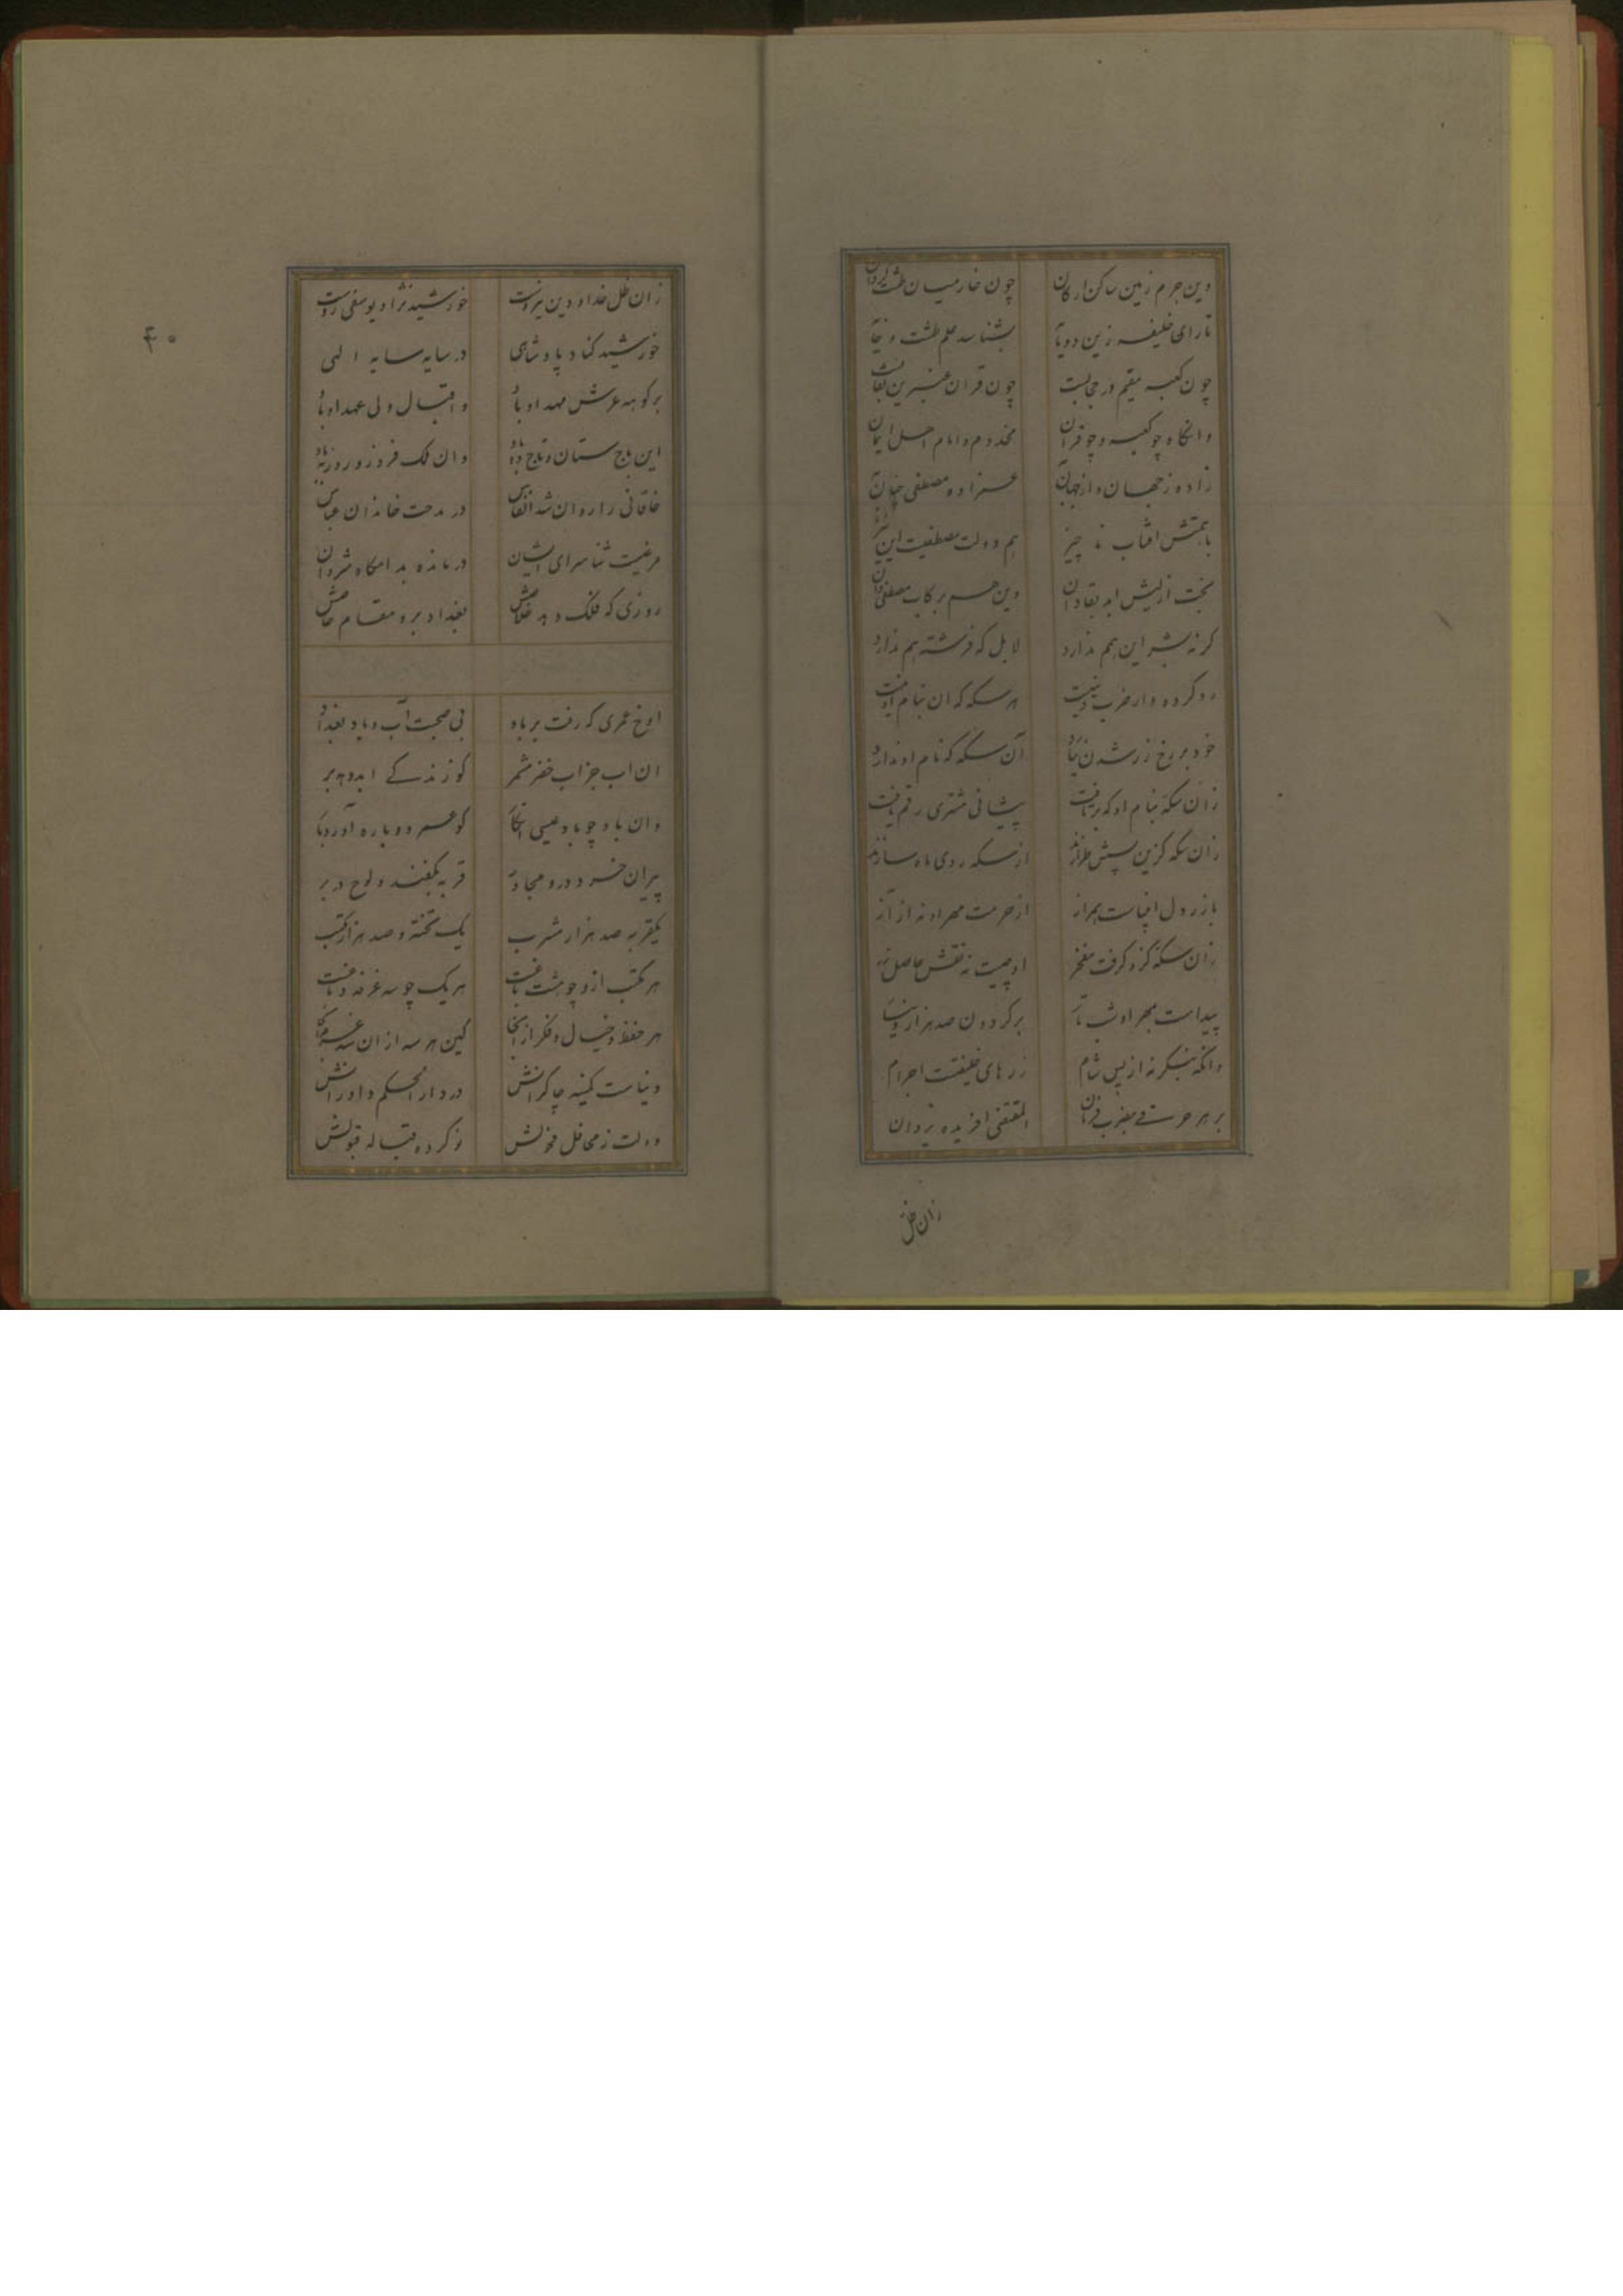 وین جرم زمین ساکن ارکان چون خار میان طشت گردان
تا رای خلیفه زین دو دیبا بشناسد علم طشت و
چون کعبه مقیم در حجابست چون قران عنبرین نقابست
وانگاه چو کعبه و چو قرآن مخدوم و امام اهل ایمان
زاده ز جهان و از جهان مصطفی
با همتش افتاب ناچیز هم دولت مصطفیست این نیز
بخت ازلیش ابد بقا دان وین هم بركات مصطفی دان
کر نه بشر این هم ندارد لا بل که فرشته هم ندارد
رد کرده دار ضرب هر سکه که ان بنام او نیست
خود بر رخ زر شدن نیارد آن سکه که نام او ندارد
زان سکه بنام او که بر تافت پیشانی مشتری رقم یافت
زان سکه کزین سپس طرازند از سکه روی ماه سازند
با زر دل از حرمت مهر او نه از آز
زان سکه کزو گرفت مفخر او صیت نه نقش حاصل
پیداست بمهر او شب تار بر کردون صد هزار دینار
وانکه بنگر نه از پس شام زرهای خلیفتست اجرام
بر هر حرفی بضرب فرمان المقتفی افریده یزدان
زان ظل
۴۰
زان ظل خدا و دین خورشید نژاد یوسفی روست
خورشید کناد پادشاهی در سایه سایه الهی
بر کوهه عرش مهد او باد و اقبال ولی عهد او باد
این باج ستان و تاج ده باد وان ملک فروز و روز به باد
خاقانی را روان شد انفاس در مدحت خاندان عباس
مرغیست ثنا سرای ایشان در مانده بدامگاه شروان
روزی که فلک دهد خلاصش بغداد برد مقام خاصش
اوخ عمری که رفت بر باد بی صحبت آب و باد بغداد
ان اب جز اب خضر مشمر کو زندگی ابد دهد بر
وان باد چو باد عیسی انجا کو عمر دوباره آورد
پیران خرد درو مجاور قربه بکفند و لوح در بر
یکقربه صد هزار مشرب یک تخته و صد هزار مکتب
هر مکتب ازو چو هشت باغست هر یک چو سه غرفه
هر حفظ و خیال و فکر از انجا کین هر سه از ان سه غرفه
دنیاست کمینه چاکرانش در دار الحکم داورانش
دولت ز محافل فحولش نو کرده قباله قبولش